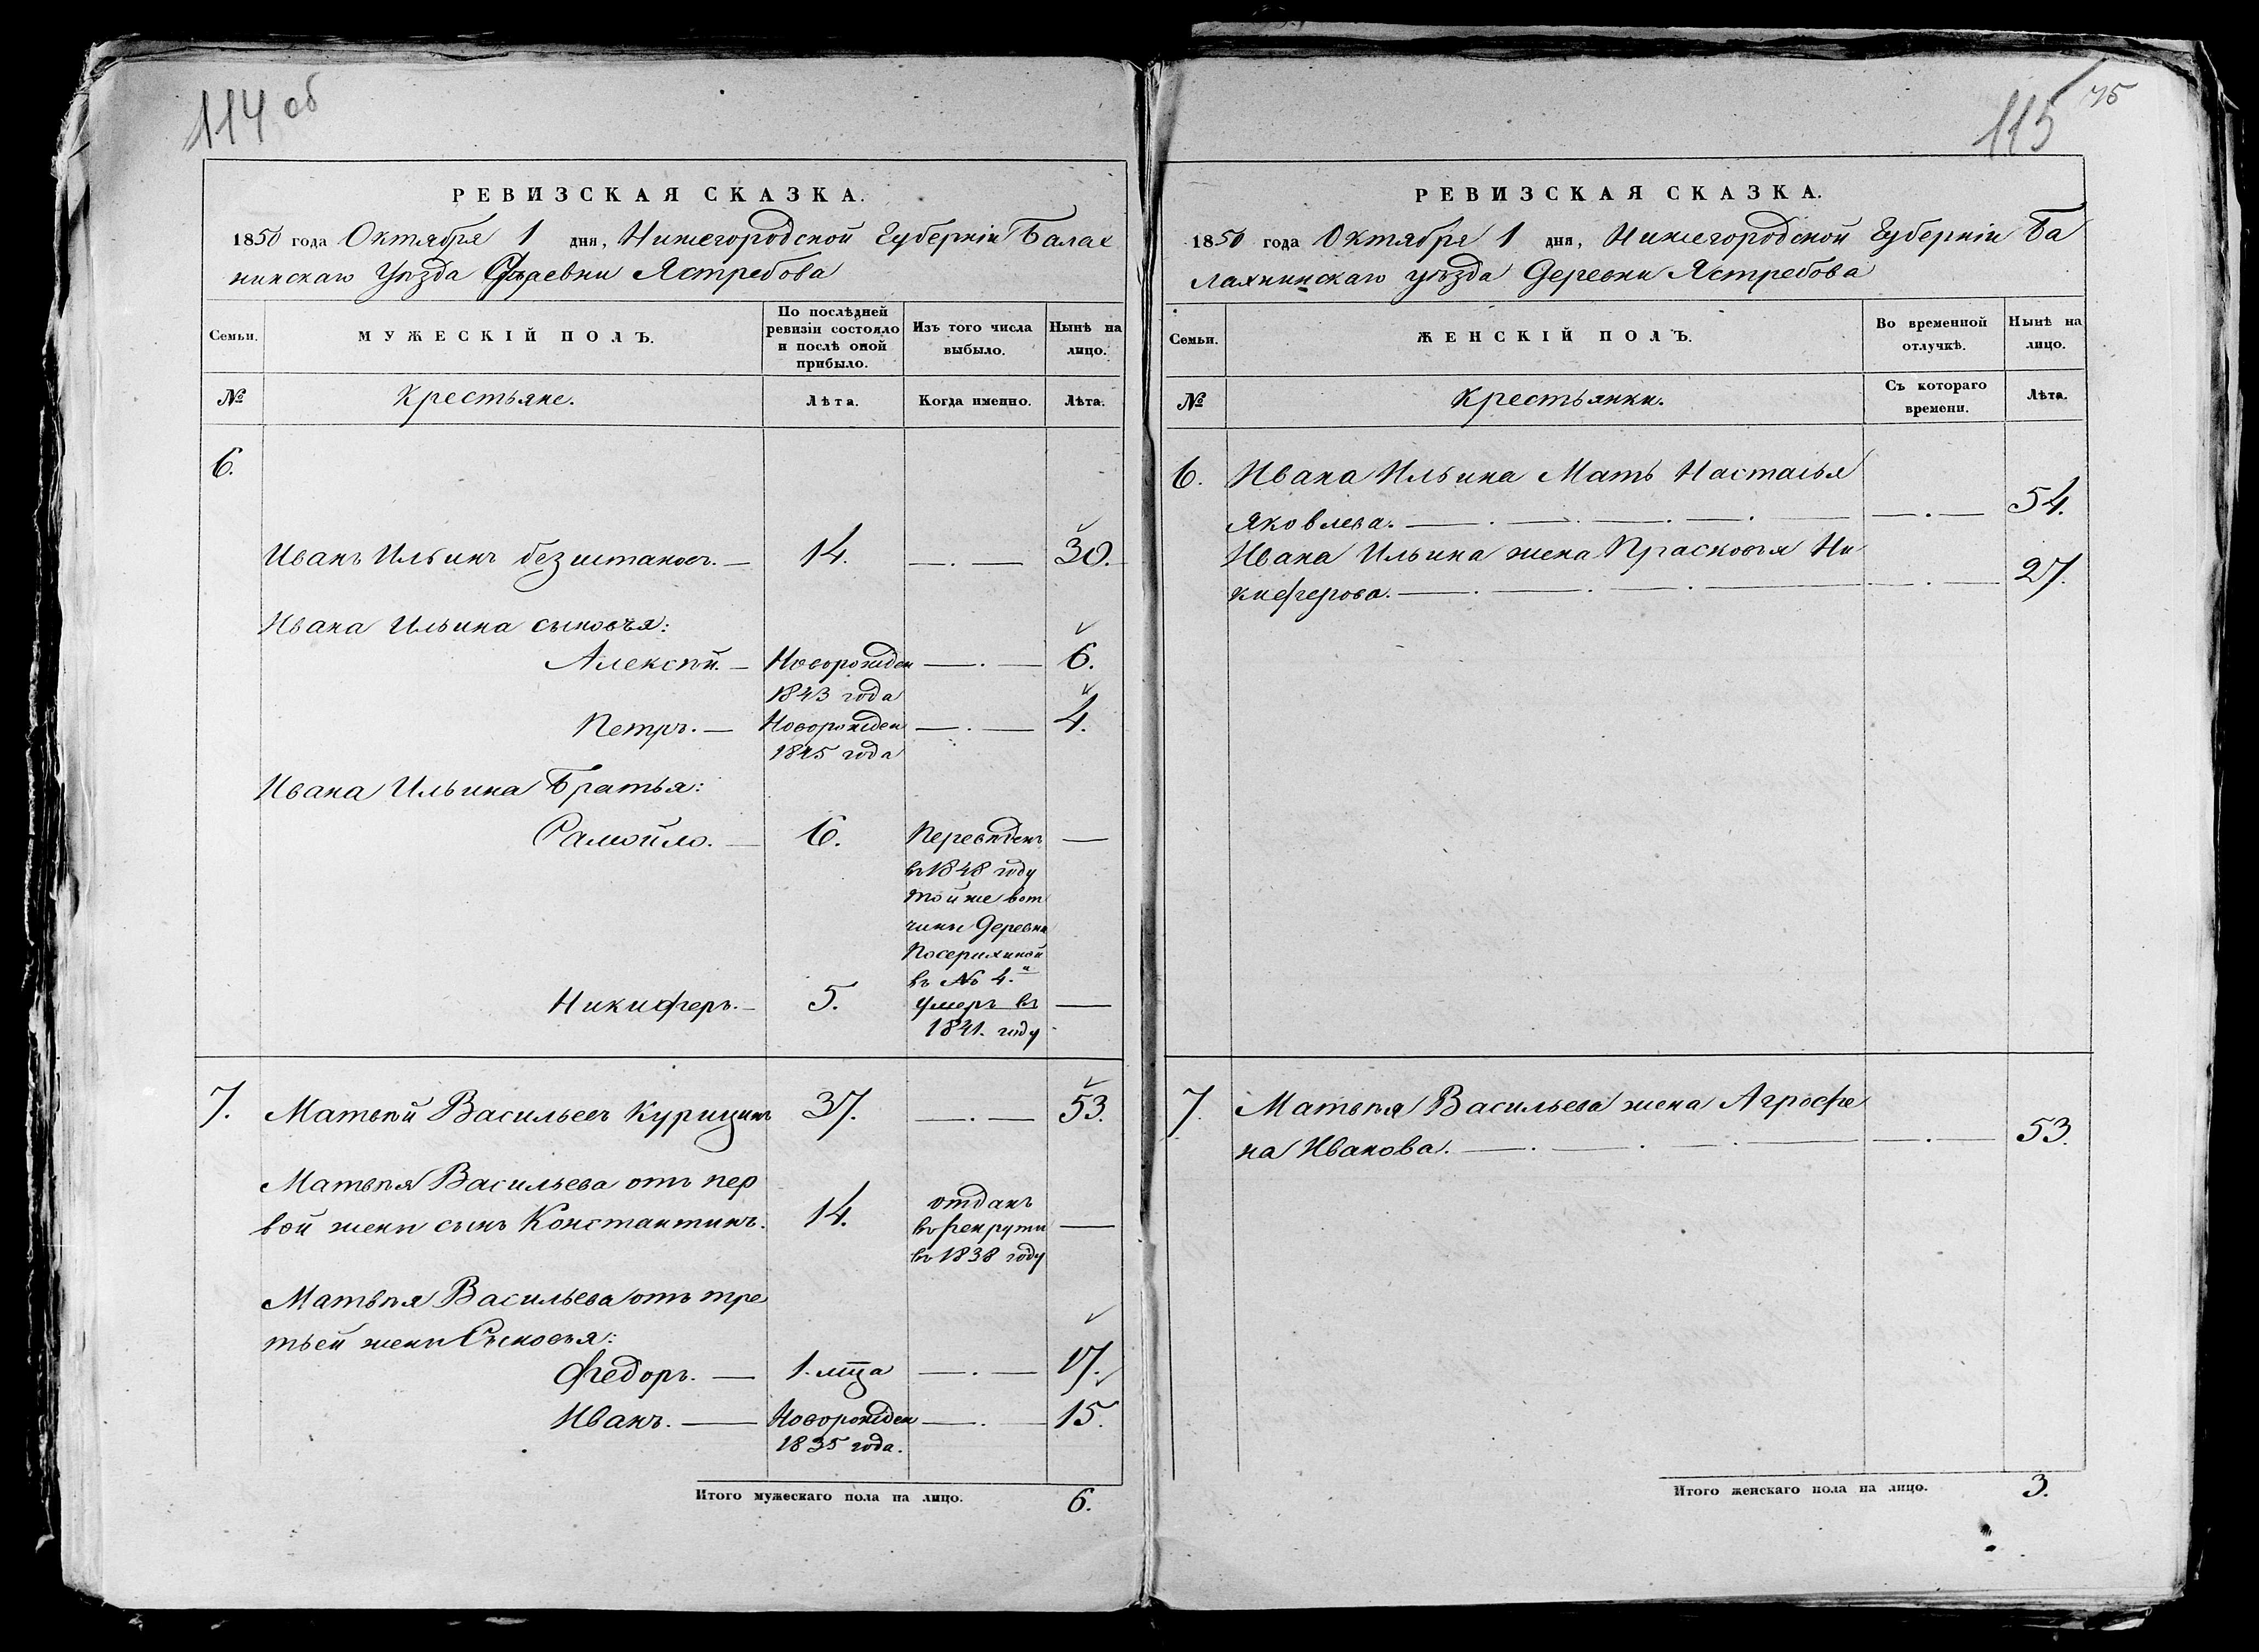 114 об
РЕВИЗСКАЯ СКАЗКА.
1850 года Октября 1 дня, Нижегородской Губерніи Балах
нинскаго Уѣзда Деревни Ястребова
Семьи.
МУЖЕСКІЙ ПОЛЪ.
По послѣдней
ревизіи состояло
и послѣ оной
прибыло.
Изъ того числа
выбыло.
Нынѣ на
лицо.
№
Крестьяне.
Лѣта.
Когда именно.
Лѣта.
6.
Иванъ Ильинъ безштановъ. — 14. —.— 30.
Ивана Ильина сыновья:
Алексѣй. — Новорожден —.— 6.
1843 года
Петръ. — Новорожден —.— 4.
1845 года
Ивана Ильина Братья:
Самойло. — 6. Переведенъ —
въ 1848 году
той же вот
чины Деревни
въ № 4.й
Никиферъ. — 5. умеръ въ —
1841. году
7. Матвѣй Васильевъ Курицинъ 37. —.— 53.
Матвѣя Васильева отъ пер
вой жены сынъ Константинъ. 14. отданъ —
въ рекруты
въ 1838 году
Матвѣя Васильева отъ тре
тьей жены Сыновья:
Федоръ. — 1. мца —.— 17.
Иванъ. — Новорожден —.— 15.
1835 года.
Итого мужескаго пола на лицо. 6.
115 75
РЕВИЗСКАЯ СКАЗКА.
1850 года Октября 1 дня, Нижегородской Губерніи Ба
лахнинскаго уѣзда Деревни Ястребова
Семьи.
ЖЕНСКІЙ ПОЛЪ.
Во временной
отлучкѣ.
Нынѣ на
лицо.
№
Крестьянки.
Съ котораго
времени.
Лѣта.
6. Ивана Ильина Мать Настасья
Яковлева. —.—.—.— —.— 54.
Ивана Ильина жена Прасковья Ни
киферова. —.—.—.— —.— 27.
7. Матвѣя Васильева жена Агрофе
на Иванова. —.—.—.— —.— 53.
Итого женскаго пола на лицо. 3.